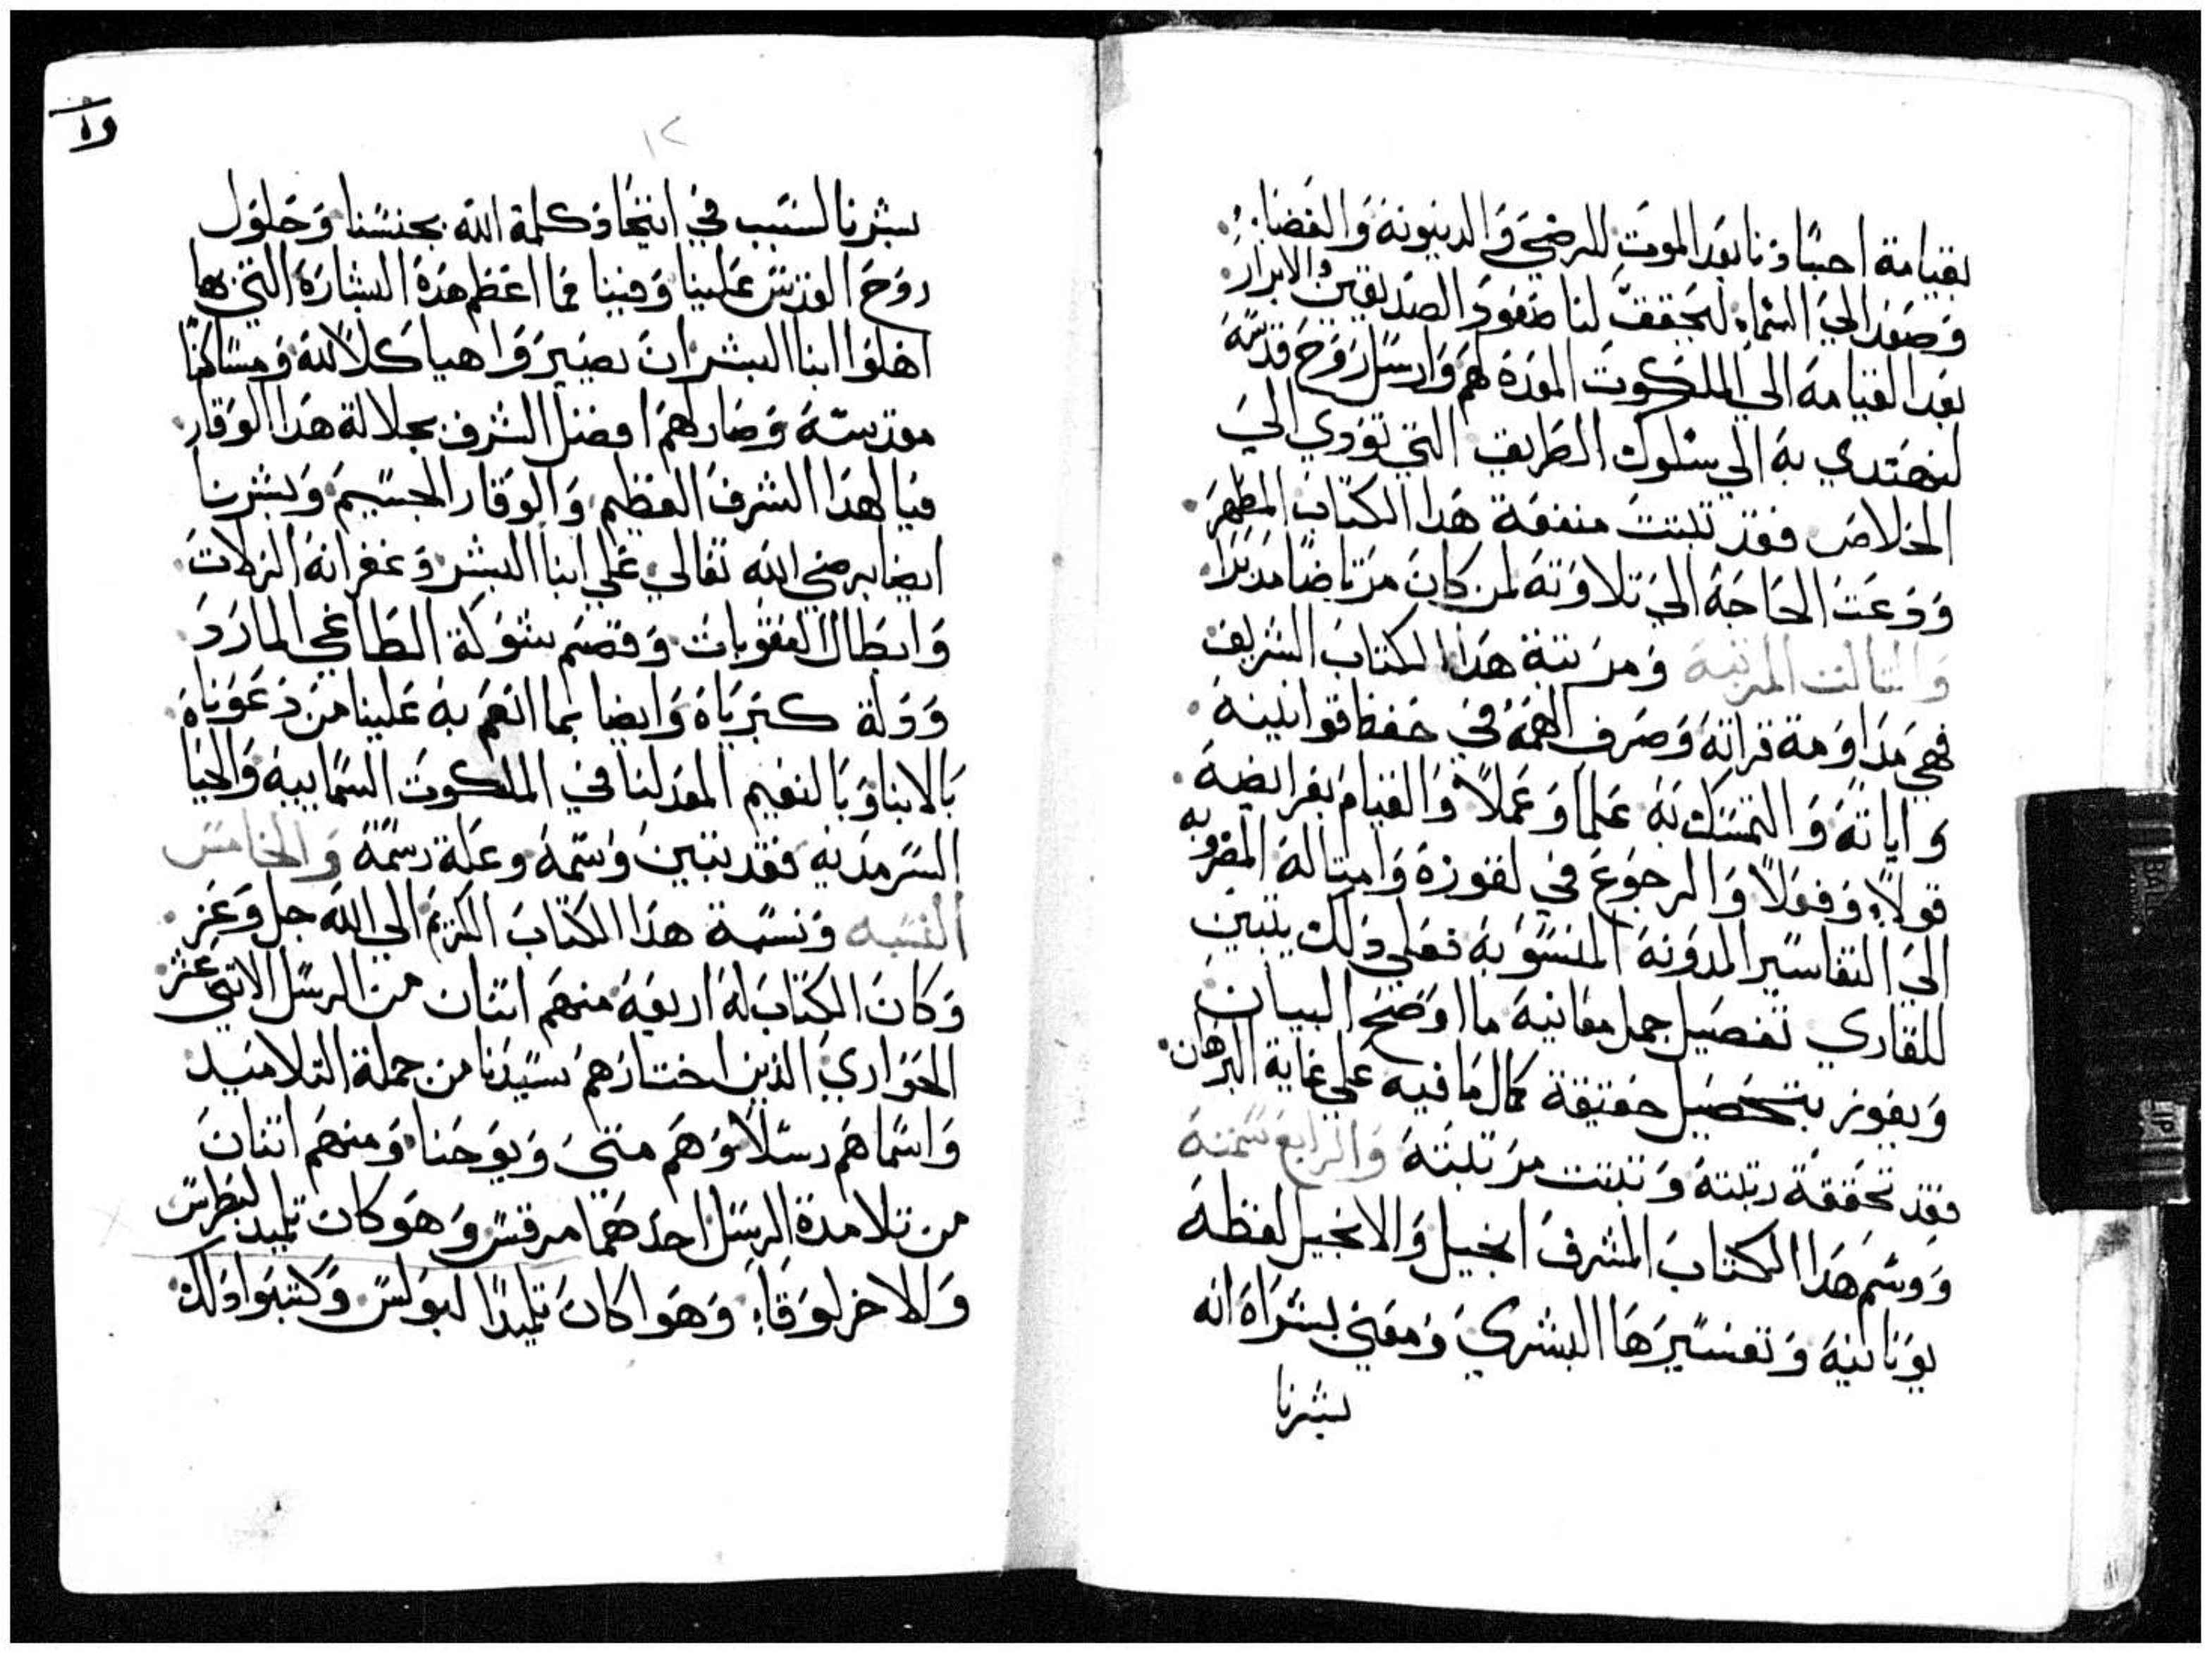 بقيامة احسادنا بعد الموت للرضي والدينونة والقضا
وصعد الي السماء ليحقق لنا صعود الصديقين والابرار
بعد القيامه الي الملكوت المعدة لهم وارسل روح قدسه
لنهتدي به الي سلوك الطريق التي تودي الي
الخلاص فقد تبتت منفعة هدا الكتاب المطهر
ودعت الحاجة الي تلاوته لمن كان مرتاضا مدبرا
والتالت المرتبه ومرتبة هدا الكتاب الشريف
فهي مداومة قراته وصرف الهمه في حفظ قوانينه
واياته والتمسك به علما وعملا والقيام بفرايضه
قولا وفعلا والرجوع في لغوزه وامتاله المضروبه
الي التفاسير المدونه المنسوبه فعلي دلك يتبين
للقاري تفصيل جمل معانيه ما اوضح البيان
ويفوز بتحصيل حقيقة كمال ما فيه علي غاية البرهان
فقد تحققة رتبته وتبتت مرتبته والرابع سمته
ووسم هدا الكتاب المشرف انجيل والانجيل لفظه
يونانيه وتفسيرها البشري ومعني بشراه انه
بشرنا
١٢
بشرنا السبب في اتحاد كلمة الله بجنسنا وحلول
روح القدس علينا وفينا فما اعظم هده البشاره التي بها
اهلوا ابنا البشر ان يصيروا هياكلا لله ومساكنا
مقدسة وصار لهم افضل الشرف بجلالة هدا الوقار
فيا لهدا الشرف العظيم والوقار الجسيم وبشرنا
ايضا برضي الله تعالي علي ابنا البشر وغفرانه الزلات
وابطال العقوبات وقصم شوكة الطاغي المارد
ودلة كبرياه وايضا بما انعم به علينا من دعوناه
بالابنا وبالنعيم المعد لنا في الملكوت السماييه والحيا
السرمديه فقد تبين وسمه وعلة رسمة والخامس
النسبه ونسبة هدا الكتاب الكريم الي الله جل وعز
وكان الكتاب له اربعة منهم اتنان من الرسل الاتني عشر
الحواري الذين اختارهم سيدنا من جملة التلاميد
واسماهم رسلا وهم متي ويوحنا ومنهم اتنان
من تلامدة الرسل احدهما مرقس وهو كان تلميد لبطرس
والاخر لوقا وهوا كان تلميدا لبولس وكتبوا دلك